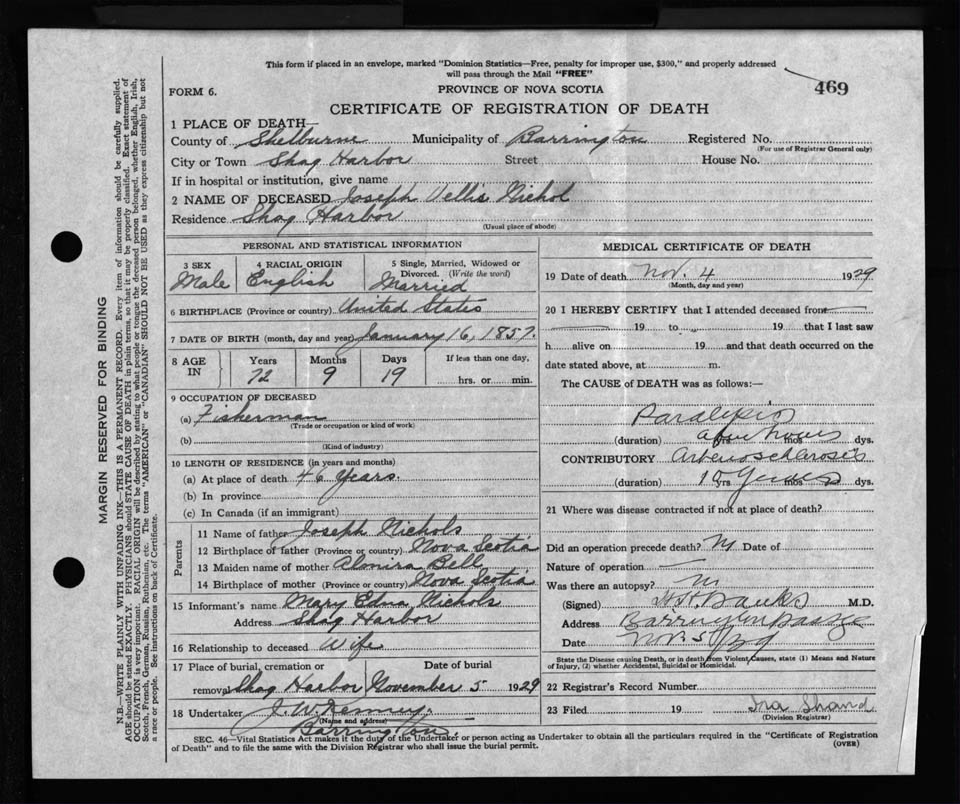 This form if placed in an envelope, marked "Dominion Statistics—Free, penalty for improper use, $300," and properly addressed
will pass through the Mail "FREE"
469
FORM 6.
PROVINCE OF NOVA SCOTIA
CERTIFICATE OF REGISTRATION OF DEATH
1 PLACE OF DEATH—
County of Shelburne Municipality of Barrington Registered No.
(For use of Registrar General only)
City or Town Shag Harbor Street House No.
If in hospital or institution, give name
2 NAME OF DECEASED Joseph Vellis Nichol
Residence Shag Harbor
(Usual place of abode)
PERSONAL AND STATISTICAL INFORMATION
3 SEX
Male
4 RACIAL ORIGIN
English
5 Single, Married, Widowed or
Divorced. (Write the word)
Married
6 BIRTHPLACE (Province or country) United States
7 DATE OF BIRTH (month, day and year) January 16, 1857.
8 AGE IN
Years Months Days If less than one day,
72 9 19 hrs. or min.
9 OCCUPATION OF DECEASED
(a) Fisherman
(Trade or occupation or kind of work)
(b)
(Kind of industry)
10 LENGTH OF RESIDENCE (in years and months)
(a) At place of death 46 Years.
(b) In province
(c) In Canada (if an immigrant)
Parents
11 Name of father Joseph Nichols
12 Birthplace of father (Province or country) Nova Scotia
13 Maiden name of mother Almira Bell
14 Birthplace of mother (Province or country) Nova Scotia
15 Informant's name Mary Edna Nichols
Address Shag Harbor
16 Relationship to deceased Wife
17 Place of burial, cremation or Date of burial
removal Shag Harbor November 5 1929
18 Undertaker J. W. Kenney.
(Name and address)
Barrington.
MEDICAL CERTIFICATE OF DEATH
19 Date of death Nov. 4 1929
(Month, day and year)
20 I HEREBY CERTIFY that I attended deceased from
19 to 19 that I last saw
h alive on 19 and that death occurred on the
date stated above, at m.
The CAUSE of DEATH was as follows:—
Paralysis
(duration) a few hours yrs. mos. dys.
CONTRIBUTORY Arteriosclerosis
(duration) 10 Years yrs. mos. dys.
21 Where was disease contracted if not at place of death?
Did an operation precede death? No Date of
Nature of operation
Was there an autopsy? no
(Signed) H. H. Banks M.D.
Address Barrington Passage
Date Nov 5/29
State the Disease causing Death, or in death from Violent Causes, state (1) Means and Nature
of Injury, (2) whether Accidental, Suicidal or Homicidal.
22 Registrar's Record Number
23 Filed 19 Ira Shand
(Division Registrar)
SEC. 46—Vital Statistics Act makes it the duty of the Undertaker or person acting as Undertaker to obtain all the particulars required in the "Certificate of Registration
of Death" and to file the same with the Division Registrar who shall issue the burial permit.
(OVER)
MARGIN RESERVED FOR BINDING
N.B—WRITE PLAINLY WITH UNFADING INK—THIS IS A PERMANENT RECORD. Every item of information should be carefully supplied.
AGE should be stated EXACTLY. PHYSICIANS should STATE CAUSE OF DEATH in plain terms, so that it may be properly classified. Exact statement of
OCCUPATION is very important. RACIAL ORIGIN will be described by stating to what people or tongue the deceased person belonged, whether English, Irish,
Scotch, French, German, Russian, Ruthenian, etc. The terms "AMERICAN" or "CANADIAN" SHOULD NOT BE USED as they express citizenship but not
a race or people. See instructions on back of Certificate.